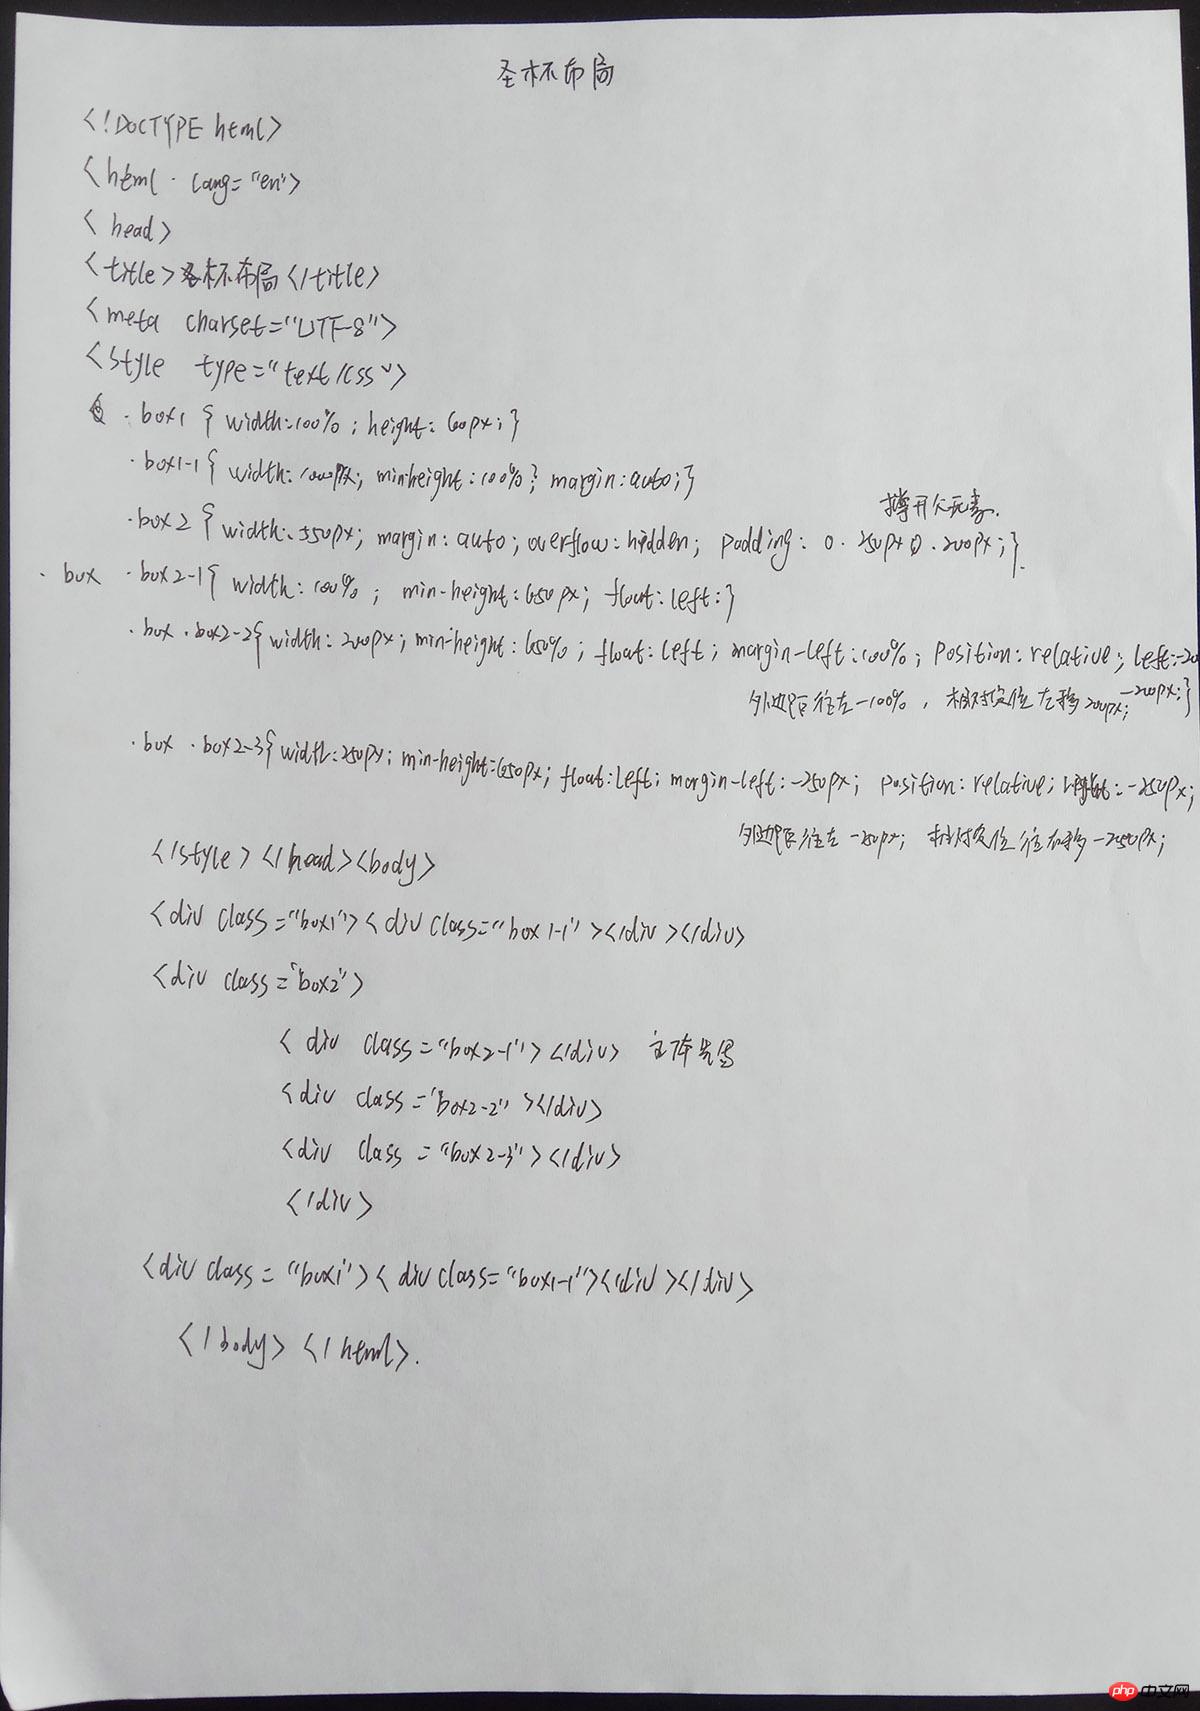 圣杯布局
<!DOCTYPE html>
<html lang="en">
<head>
<title>圣杯布局</title>
<meta charset="UTF-8">
<style type="text/css">
.box1 { width:100%; height: 60px; }
.box1-1{ width: 1000px; min-height:100%; margin:auto;}
撑开父元素.
.box2 { width: 550px; margin: auto; overflow: hidden; padding: 0 250px 0 200px;}
.box .box2-1{ width: 100%; min-height:650px; float:left;}
.box .box2-2{ width: 200px; min-height:650%; float:left; margin-left:100%; position:relative; left:-20
外边距往左-100%, 相对定位左移200px; -200px;}
.box .box2-3{ width:250px; min-height:650px; float:left; margin-left:-250px; position:relative; right:-250px;
外边距往左-250px; 相对定位往右移-250px;
</style></head><body>
<div class="box1"><div class="box1-1"></div></div>
<div class="box2">
<div class="box2-1"></div> 主体
<div class="box2-2"></div>
<div class="box2-3"></div>
</div>
<div class="box1"><div class="box1-1"></div></div>
</body></html>.
php中文网